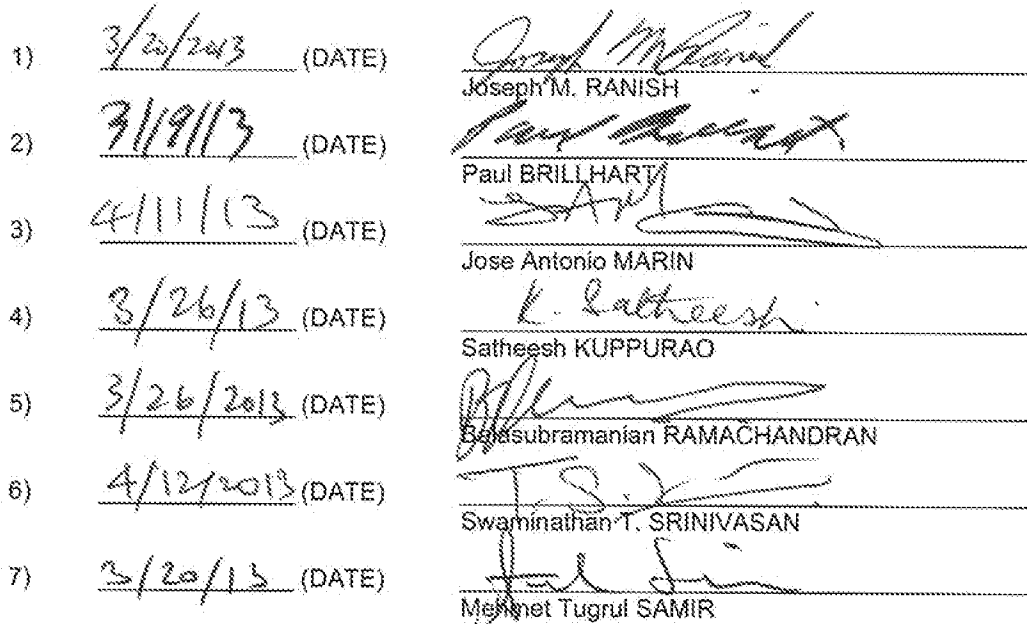 1) 3/20/2013 (DATE)
Joseph M. RANISH
2) 3/19/13 (DATE)
Paul BRILLHART
3) 4/11/13 (DATE)
Jose Antonio MARIN
4) 3/26/13 (DATE) K. Satheesh
Satheesh KUPPURAO
5) 3/26/2013 (DATE)
Balasubramanian RAMACHANDRAN
6) 4/12/2013 (DATE)
Swaminathan T. SRINIVASAN
7) 3/20/13 (DATE)
Mehmet Tugrul SAMIR